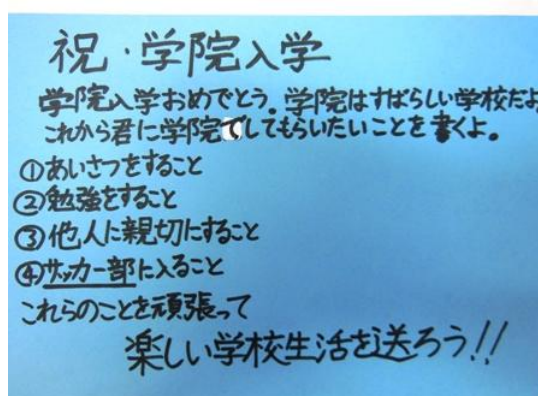 祝・学院入学
学院入学おめでとう。学院はすばらしい学校だよ
これから君に学院でしてもらいたいことを書くよ。
①あいさつをすること
②勉強をすること
③他人に親切にすること
④サッカー部に入ること
これらのことを頑張って
楽しい学校生活を送ろう!!